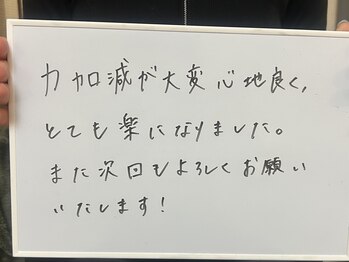 力加減が大変心地良く、
とても楽になりました。
また次回もよろしくお願い
いたします!